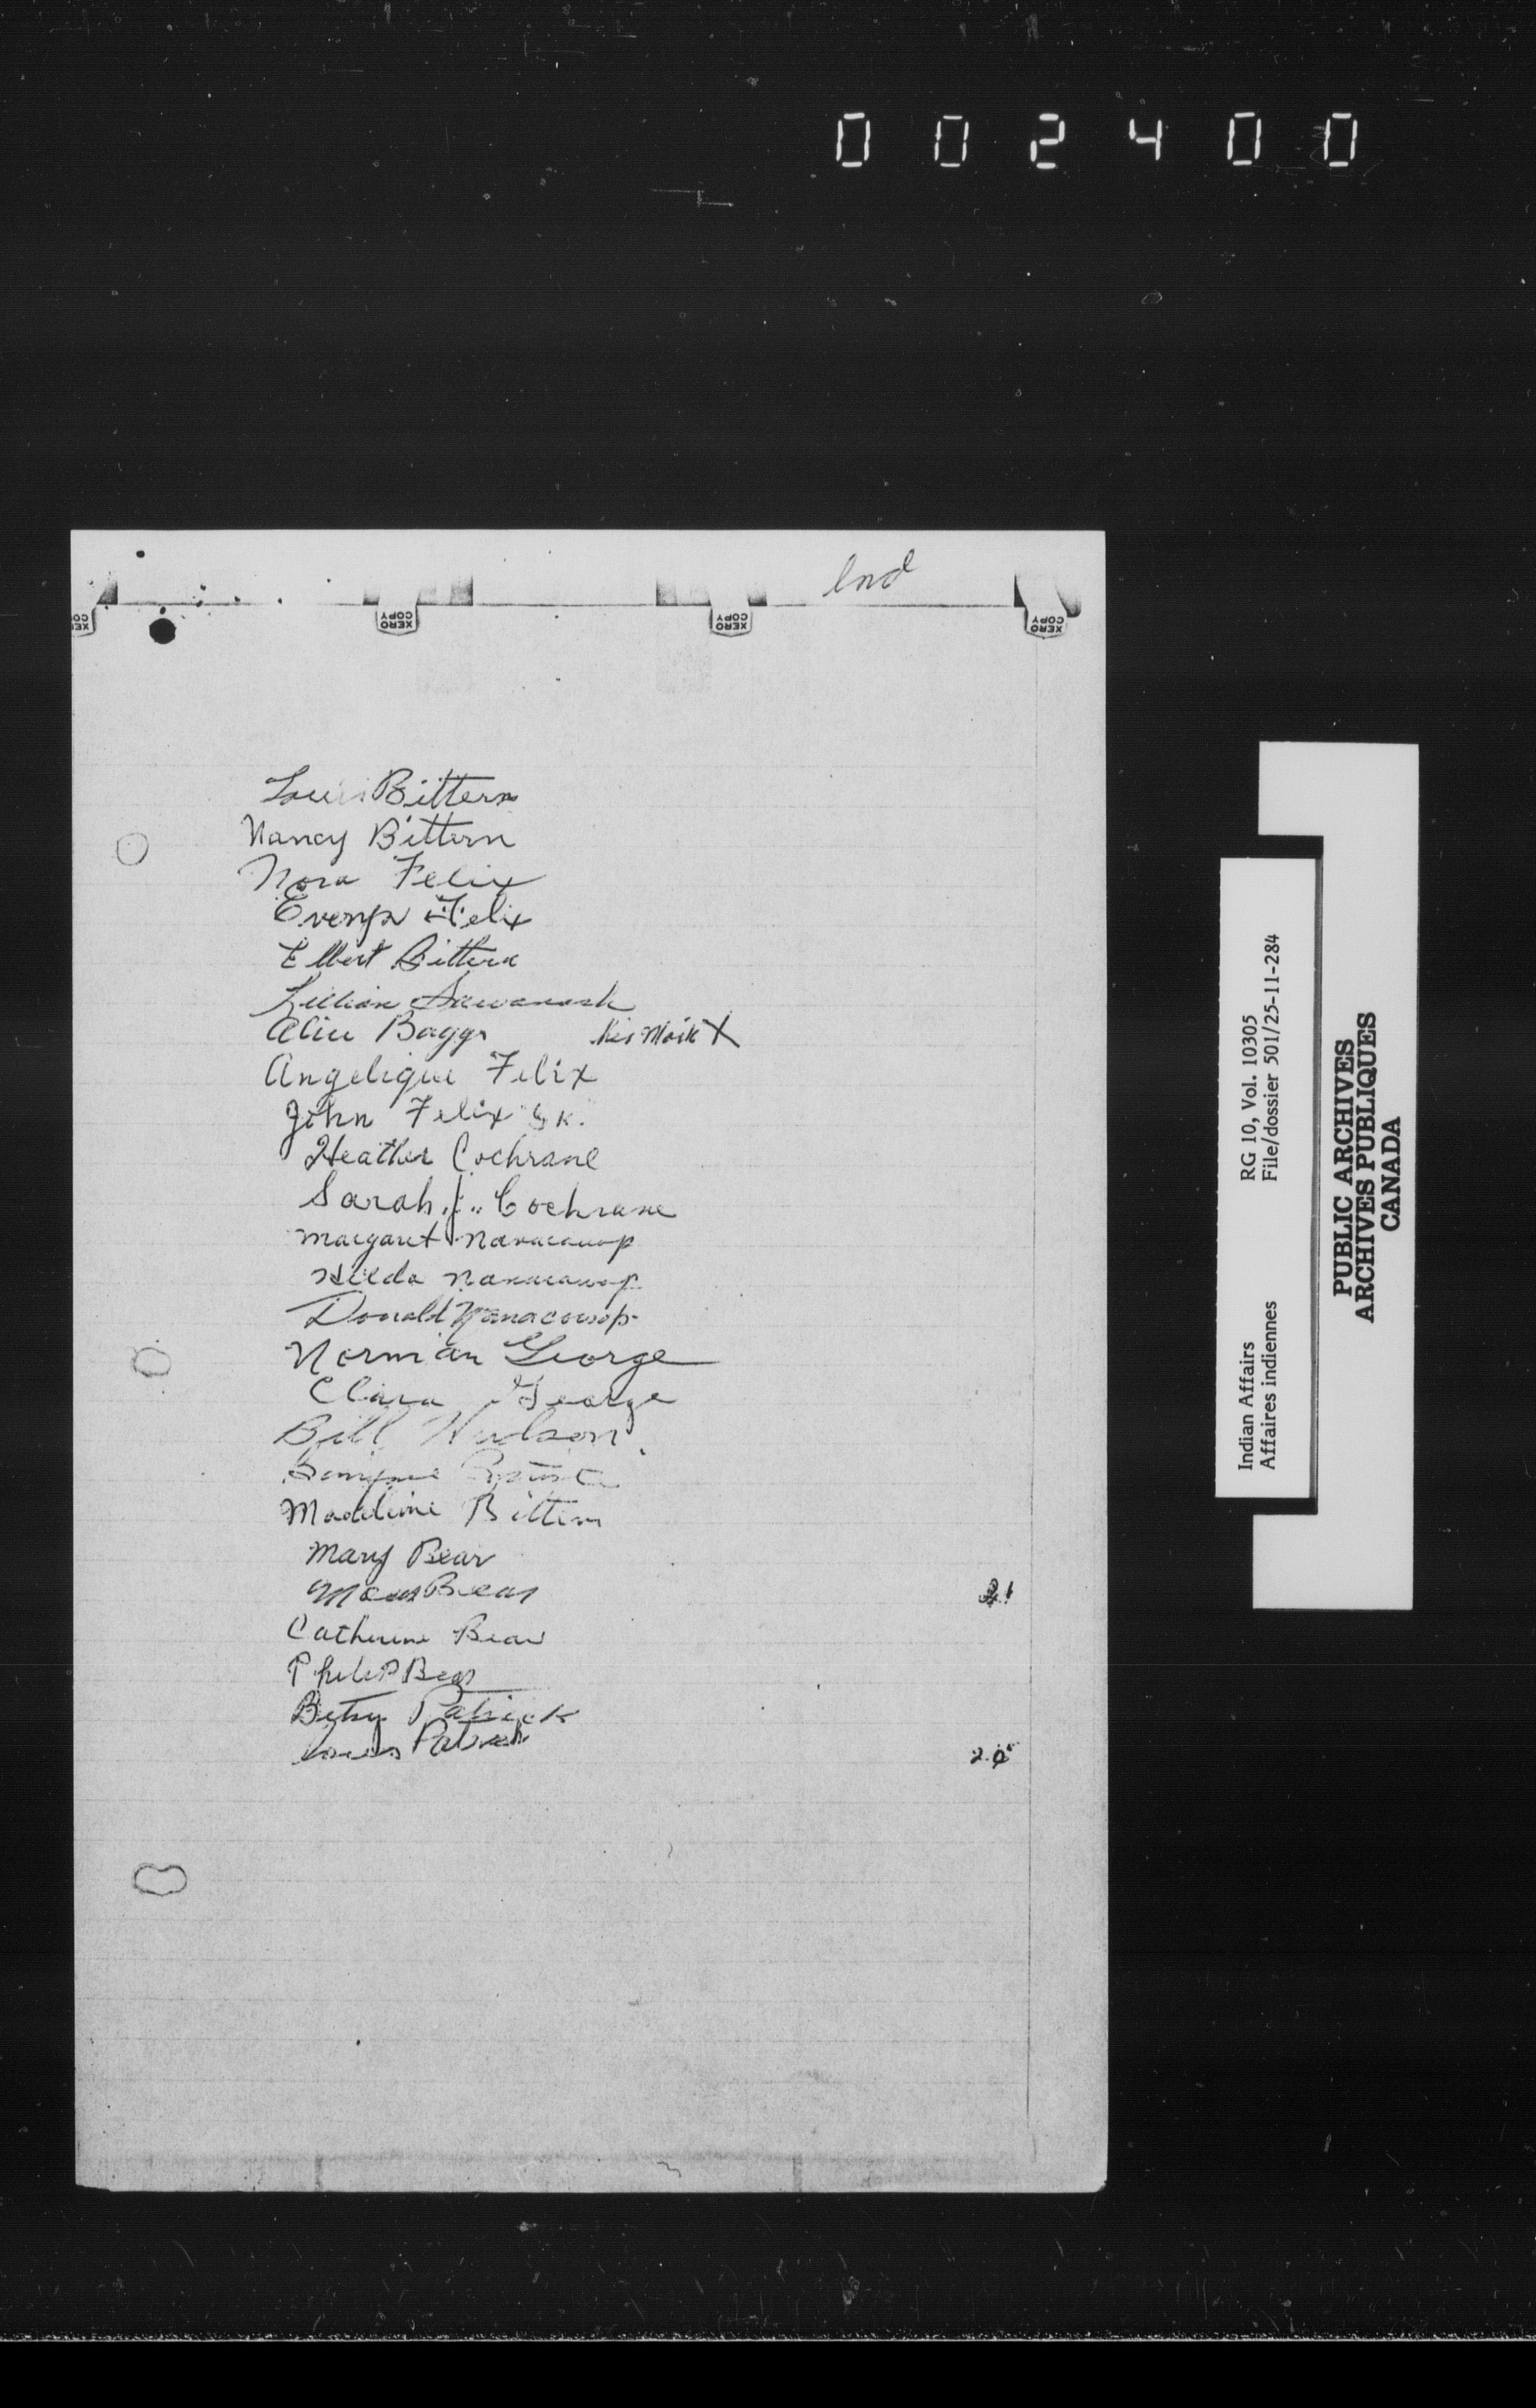 002400
End
XERO COPY
XERO COPY
XERO COPY
Louis Bittern
Nancy Bittern
Nora Felix
Felix
Elbert Bittern
Lillian Sawanash
Alice Baggs his Mark X
Angelique Felix
John Felix Sr.
Heather Cochrane
Sarah J. Cochrane
Margaret Nanacowop
Hilda Nanacowop
Donald Nanacowop
Norman George
Clara George
Bill Hudson
Madeline Bittern
Mary Bear
Bear 21
Catherine Bear
Philip Bear
Betsy Patrick
Louis Patrick
Indian Affairs RG 10, Vol. 10305
Affaires indiennes File/dossier 501/25-11-284
PUBLIC ARCHIVES
ARCHIVES PUBLIQUES
CANADA